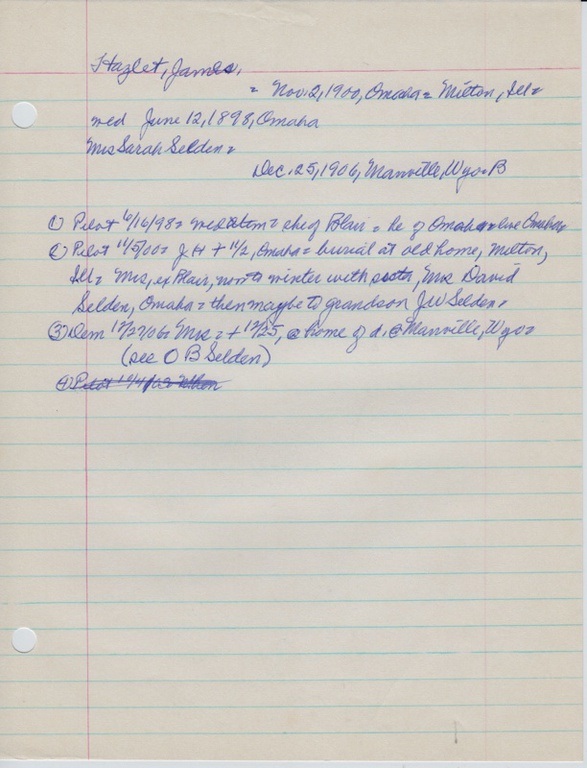 Hazlet, James,
= Nov. 2, 1900, Omaha = Milton, Ill =
wed June 12, 1898, Omaha
Mrs Sarah Selden =
Dec. 25, 1906, Manville, Wyo = B
① Pilot 6/16/98 = wed item = she of Blair = he of Omaha = live Omaha
② Pilot 11/5/00 = J H + 11/2, Omaha = burial at old home, Milton,
Ill = Mrs, ex Blair, winter with Mrs David
Selden, Omaha = then maybe to grandson JW Selden =
③ Dem 12/27/06 = Mrs = + 12/25, @ home of d. @ Manville, Wyo =
(see O B Selden)
④ Pilot